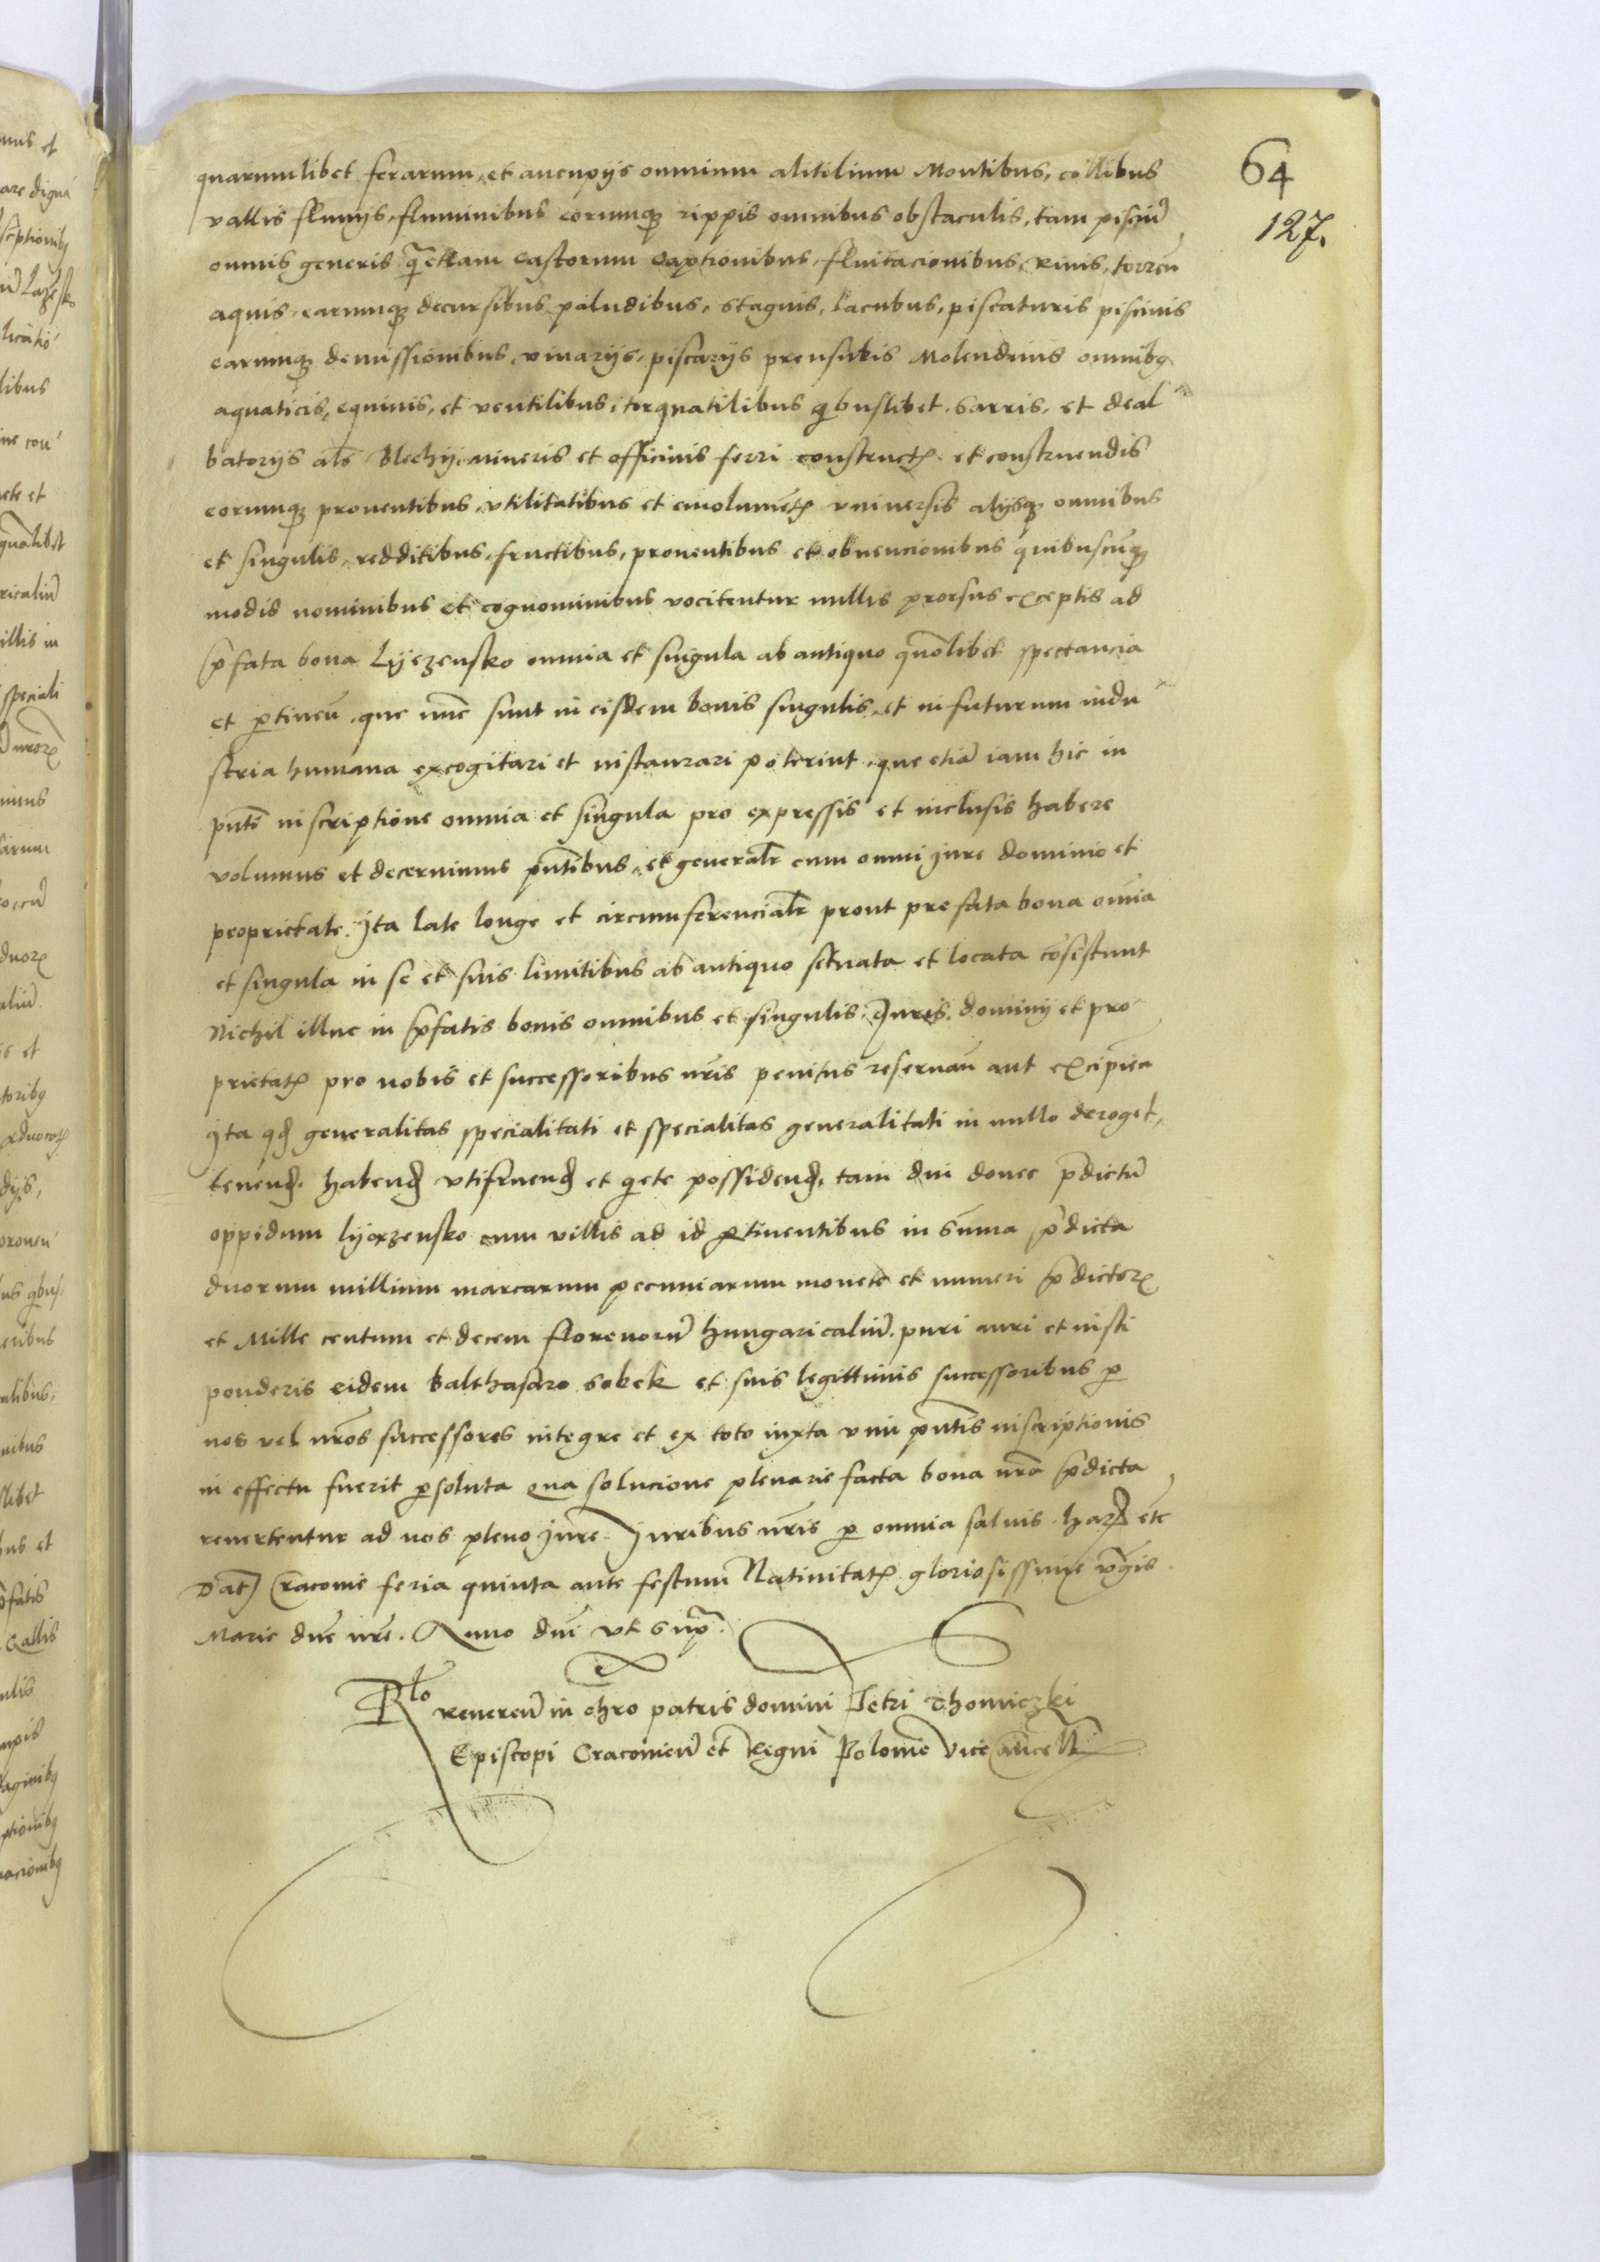 64
127.
quarumlibet ferarum, et aucupijs omnium alitilium Montibus, collibus
vallis flumijs, fluminibus eorumq₃ rippis omnibus obstaculis, tam pisciū
omnis generis q̄ etiam castorum captionibus, fluitacionibus, Riuis, torreñ
aquis, earumq₃ decursibus paludibus, stagnis, lacubus, piscaturis piscinis
earumq₃ demissionibus, viuarijs, piscarijs Molendinis omnibꝯ
aquaticis, equinis, et ventilibus, torquatilibus qͥbuslibet. Sarris, et deal
batorijs als̄ Blechij, mineris et officinis ferri constructꝭ et construendis
eorumq₃ prouentibus, vtilitatibus et emolumētꝭ vniuersis alijsq₃ omnibus
et singulis, redditibus, fructibus, prouentibus et obuencionibus quibuscūq₃
modis nominibus et cognominibus vocitentur nullis prorsus exceptis ad
p̄fata bona Lyezensko omnia et singula ab antiquo quōlibet spectancia
et ꝑtineñ, que nūc sunt in eisdem bonis singulis, et in futurum indu
stria humana excogitari et instaurari poterint, que etiā iam hic in
pn̄te inscriptione omnia et singula pro expressis et inclusis habere
volumus et decernimus pn̄tibus, et generalr̄ cum omni iure dominio et
proprietate. Ita late longe et circumferencialr̄ prout prefata bona om̄ia
et singula in se et suis limitibus ab antiquo situata et locata cōsistunt
Nichil illuc in p̄fatis bonis omnibus et singulis, Iuris, dominij et pro
prietatꝭ pro nobis et successoribus nr̄is penitus reseruañ aut excipieñ
Ita qđ generalitas specialitati et specialitas generalitati in nullo deroget,
tenenđ, habenđ vtifruenđ et qͥete possidenđ, tam diu donec p̄dictū
oppidum lyezensko cum villis ad id ꝑtinentibus in sūma p̄dicta
duorum millium marcarum pecuniarum monete et numeri p̄dictoꝝ
et Mille centum et decem florenorū hungaricaliū, puri auri et iusti
ponderis eidem Balthasaro Sobek et suis legittimis successoribus ꝑ
nos vel nr̄os successores integre et ex toto iuxta vim pn̄tis inscriptionis
in effectu fuerit ꝑsoluta qua solucione plenarie facta bona nr̄a p̄dicta
reuertentur ad nos pleno iure. Iuribus nr̄is ꝑ omnia saluis. Haꝝ etc̄
Dat̄ Cracouie feria quinta ante festum Natiuitatꝭ gloriosissime vr̄gis
Marie dn̄e nr̄e. Anno dn̄i vt supͣ.
Rlo
Reuereñ in chro patris domini Petri Thomiczki
Episcopi Cracouieñ et Regni Polonie vicecancell